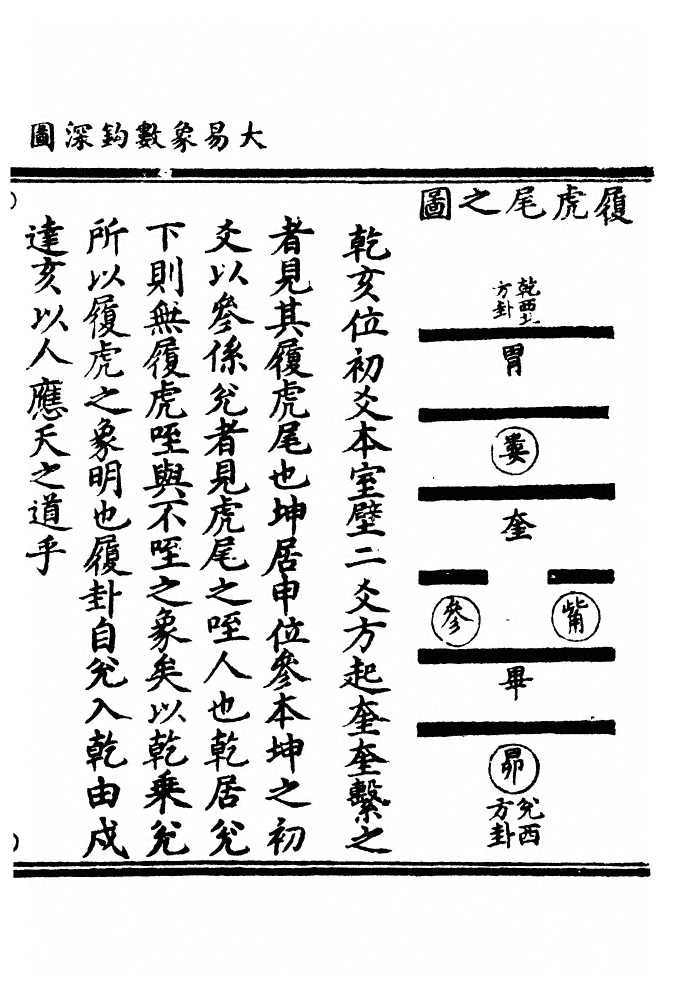 大易象數鈎深圖
履虎尾之圖
乾西北
方卦
胃
婁
奎
參 觜
畢
昴
兊西
方卦
乾亥位初爻本室壁二爻方起奎奎繫之
者見其履虎尾也坤居申位參本坤之初
爻以參係兊者見虎尾之咥人也乾居兊
下則無履虎咥與不咥之象矣以乾乘兊
所以履虎之象明也履卦自兊入乾由戌
達亥以人應天之道乎